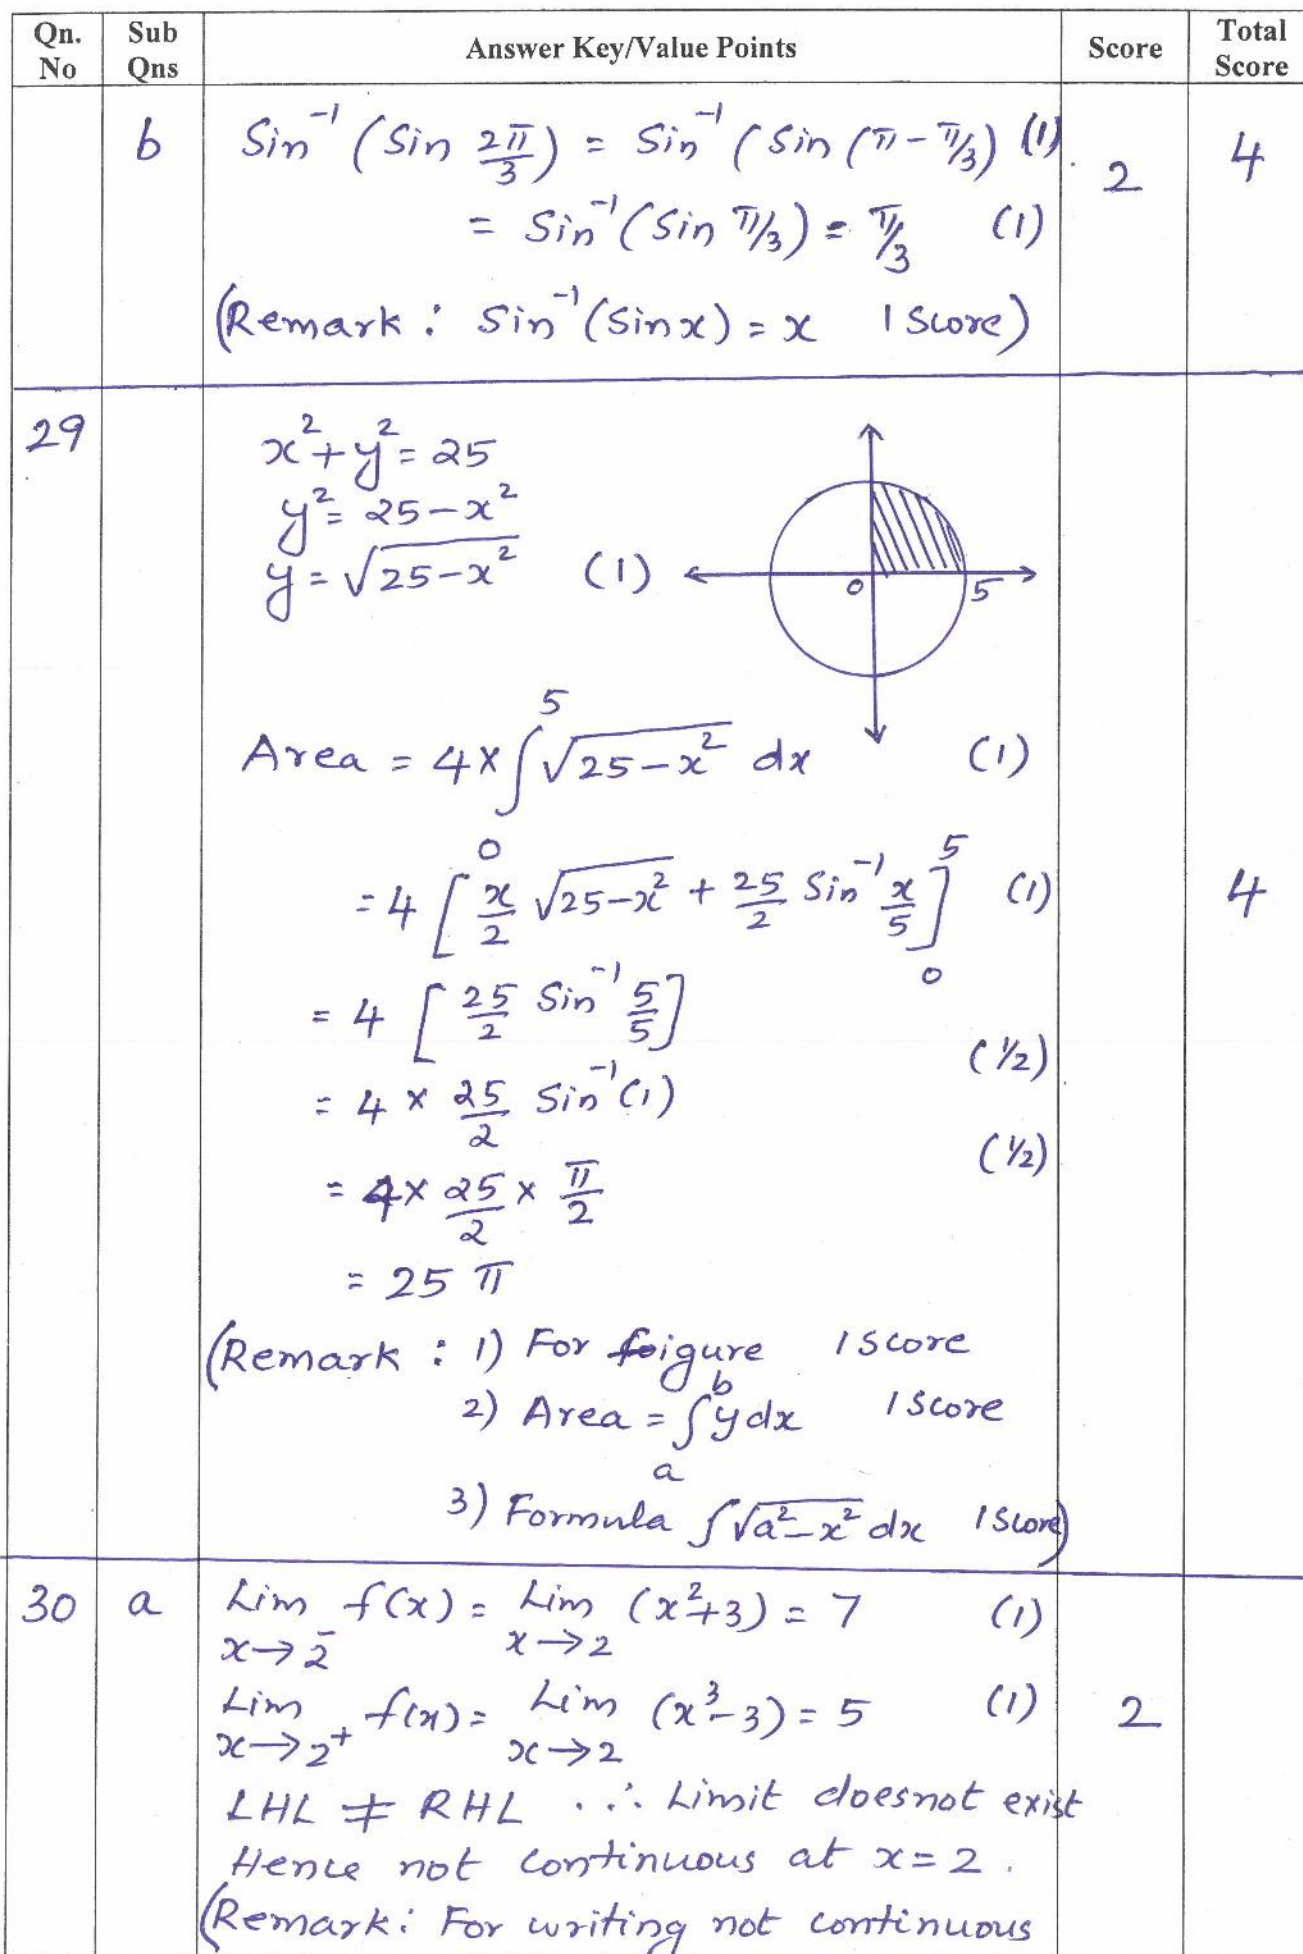 Qn. No Sub Qns Answer Key/Value Points Score Total Score
b Sin⁻¹ (Sin 2π/3) = Sin⁻¹ (Sin (π - π/3) (1) 2 4
= Sin⁻¹ (Sin π/3) = π/3 (1)
(Remark : Sin⁻¹ (Sin x) = x 1 Score)
29 x² + y² = 25
y² = 25 - x²
y = √(25 - x²) (1)
0 5
Area = 4 × ∫₀⁵ √(25 - x²) dx (1)
= 4 [ x/2 √(25 - x²) + 25/2 Sin⁻¹ x/5 ]₀⁵ (1) 4
= 4 [ 25/2 Sin⁻¹ 5/5 ]
(1/2)
= 4 × 25/2 Sin⁻¹ (1)
(1/2)
= 4 × 25/2 × π/2
= 25 π
(Remark : 1) For figure 1 Score
2) Area = ∫ₐᵇ y dx 1 Score
3) Formula ∫ √(a² - x²) dx 1 Score)
30 a Lim x→2⁻ f(x) = Lim x→2 (x² + 3) = 7 (1)
Lim x→2⁺ f(x) = Lim x→2 (x³ - 3) = 5 (1) 2
LHL ≠ RHL ∴ Limit doesnot exist
Hence not continuous at x = 2 .
(Remark : For writing not continuous